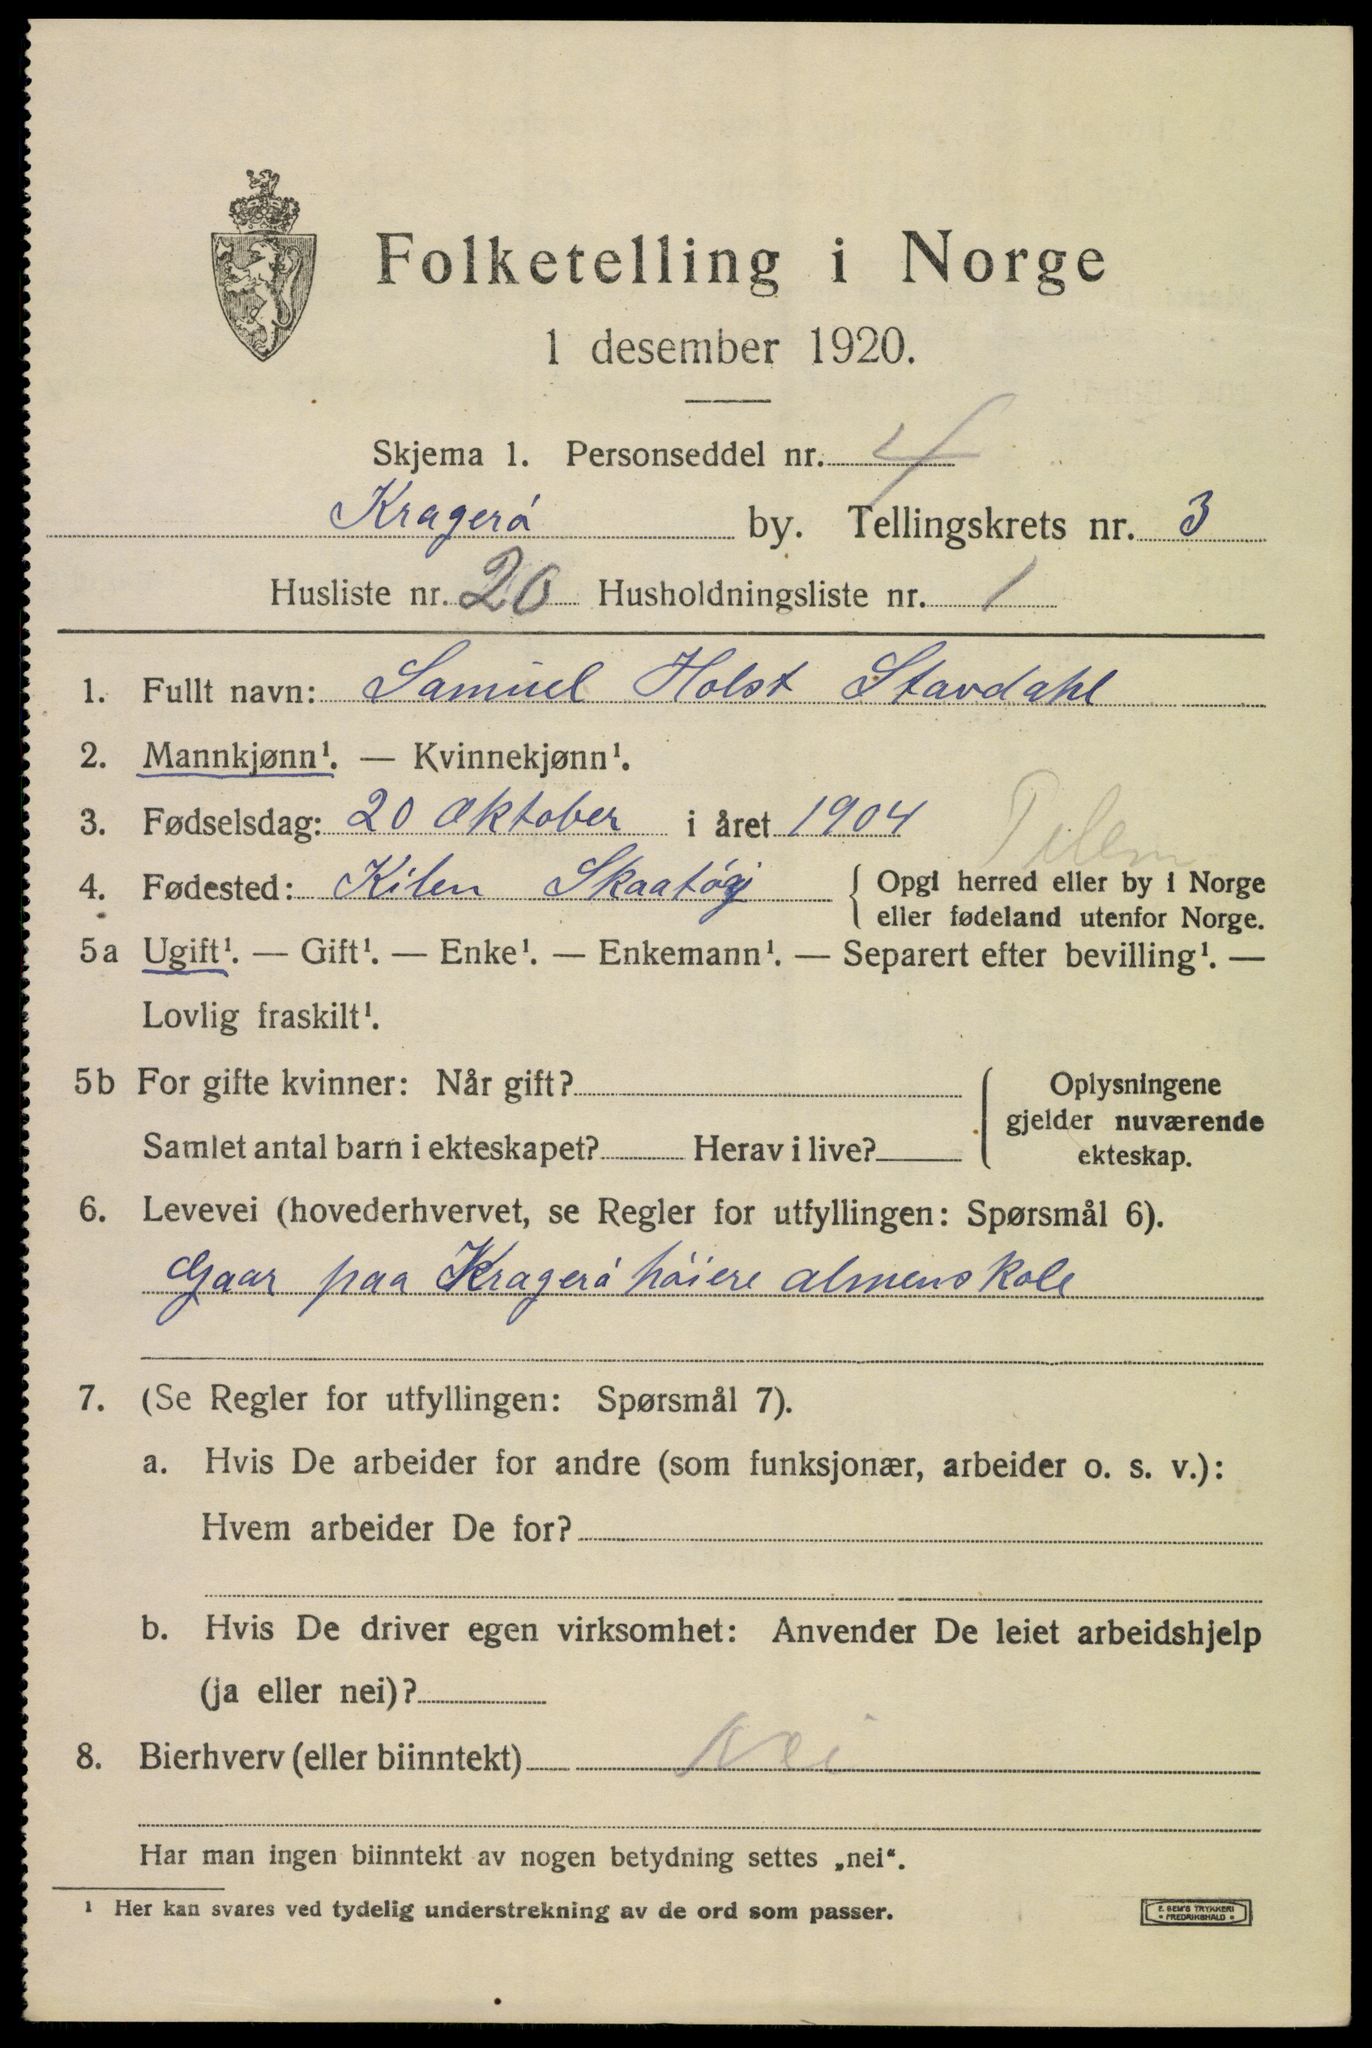 Folketelling i Norge
1 desember 1920.
Skjema 1. Personseddel nr. 4
Kragerø by. Tellingskrets nr. 3
Husliste nr. 20 Husholdningsliste nr. 1
1. Fullt navn: Samuel Holst Stavdahl
2. Mannkjønn¹. — Kvinnekjønn¹.
3. Fødselsdag: 20 Oktober i året 1904
Telem
4. Fødested: Kilen Skaatøy { Opgi herred eller by i Norge
eller fødeland utenfor Norge.
5a Ugift¹. — Gift¹. — Enke¹. — Enkemann¹. — Separert efter bevilling¹. —
Lovlig fraskilt¹.
5b For gifte kvinner: Når gift?
Samlet antal barn i ekteskapet? Herav i live?
Oplysningene
gjelder nuværende
ekteskap.
6. Levevei (hovederhvervet, se Regler for utfyllingen: Spørsmål 6).
Gaar paa Kragerø høiere almenskole
7. (Se Regler for utfyllingen: Spørsmål 7).
a. Hvis De arbeider for andre (som funksjonær, arbeider o. s. v.):
Hvem arbeider De for?
b. Hvis De driver egen virksomhet: Anvender De leiet arbeidshjelp
(ja eller nei)?
8. Bierhverv (eller biinntekt) Nei
Har man ingen biinntekt av nogen betydning settes „nei“.
¹ Her kan svares ved tydelig understrekning av de ord som passer.
E. SEM'S TRYKKERI
• FREDRIKSHALD •